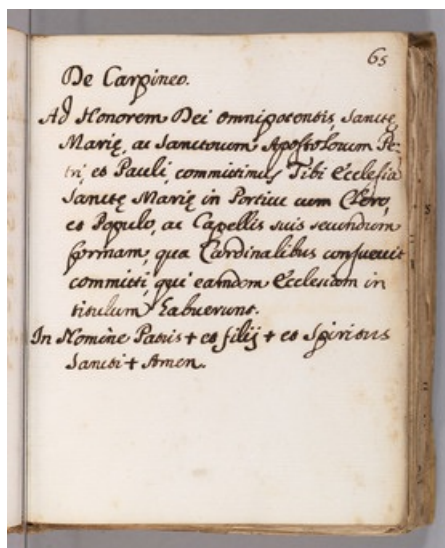 65
De Carpineo.
Ad Honorem Dei omnipotentis, Sanctę
Marię, ac Sanctorum Apostolorum Pe:
tri, et Pauli, committimus Tibi Ecclesia
Sanctę Marię in Porticu cum Clero,
et Populo, ac Capellis suis secundum
formam, qua Cardinalibus consuevit
committi, qui eamdem Ecclesiam in
titulum habuerunt.
In Nomine Patris + et filij + et Spiritus
Sancti + Amen.